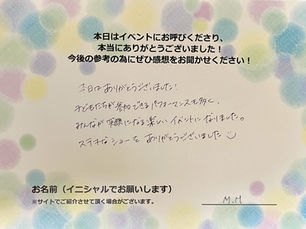 本日はイベントにお呼びくださり、
本当にありがとうございました！
今後の参考の為にぜひ感想をお聞かせください！
本日はありがとうございました！
子どもたちが参加できるパフォーマンスも多く、
みんなが笑顔になる楽しいイベントになりました。
ステキなショーをありがとうございました
お名前（イニシャルでお願いします）
M.M
※サイトでご紹介させて頂く場合がございます。